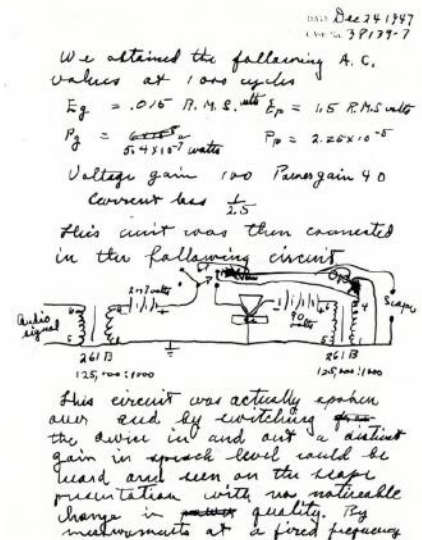 DATE Dec 24 1947
CASE No. 38139-7
We obtained the following A.C.
values at 1000 cycles
Eg = .015 R.M.S. volts Ep = 1.5 R.M.S volts
Pg = 5.4 x 10⁻⁷ watts Pp = 2.25 x 10⁻⁵
Voltage gain 100 Power gain 40
Current loss 1/2.5
This unit was then connected
in the following circuit
Audio signal
261B
125,000:1000
90 volts
261B
125,000:1000
Scope
This circuit was actually spoken
over and by switching
the device in and out a distinct
gain in speech level could be
heard and seen on the scope
presentation with no noticeable
change in quality. By
measurements at a fixed frequency